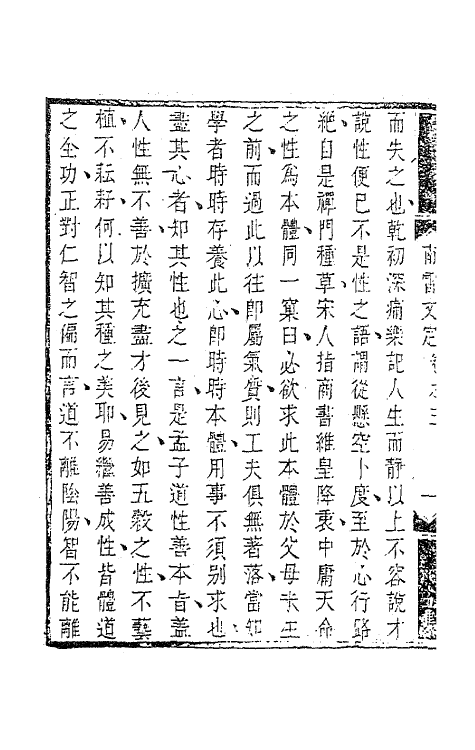 南雷文定
而失之也乾初深痛樂記人生而靜以上不容說才
說性便已不是性之語謂從懸空卜度至於心行路
絕自是禪門種草宋人指商書維皇降衷中庸天命
之性為本體同一窠臼必欲求此本體於父母未生
之前而過此以往即屬氣質則工夫俱無著落當知
學者時時存養此心即時時本體用事不須別求也
盡其心者知其性也之一言是孟子道性善本旨蓋
人性無不善於擴充盡才後見之如五穀之性不藝
植不耘耔何以知其種之美耶易繼善成性皆體道
之全功正對仁智之偏而言道不離陰陽智不能離